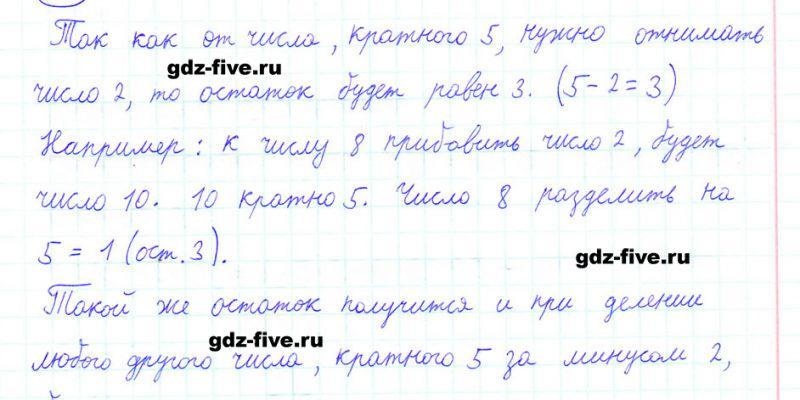 Так как от числа, кратного 5, нужно отнимать
gdz-five.ru
число 2, то остаток будет равен 3. (5-2=3)
Например: к числу 8 прибавить число 2, будет
число 10. 10 кратно 5. Число 8 разделить на
5 = 1 (ост. 3).
gdz-five.ru
Такой же остаток получится и при делении
gdz-five.ru
любого другого числа, кратного 5 за минусом 2,